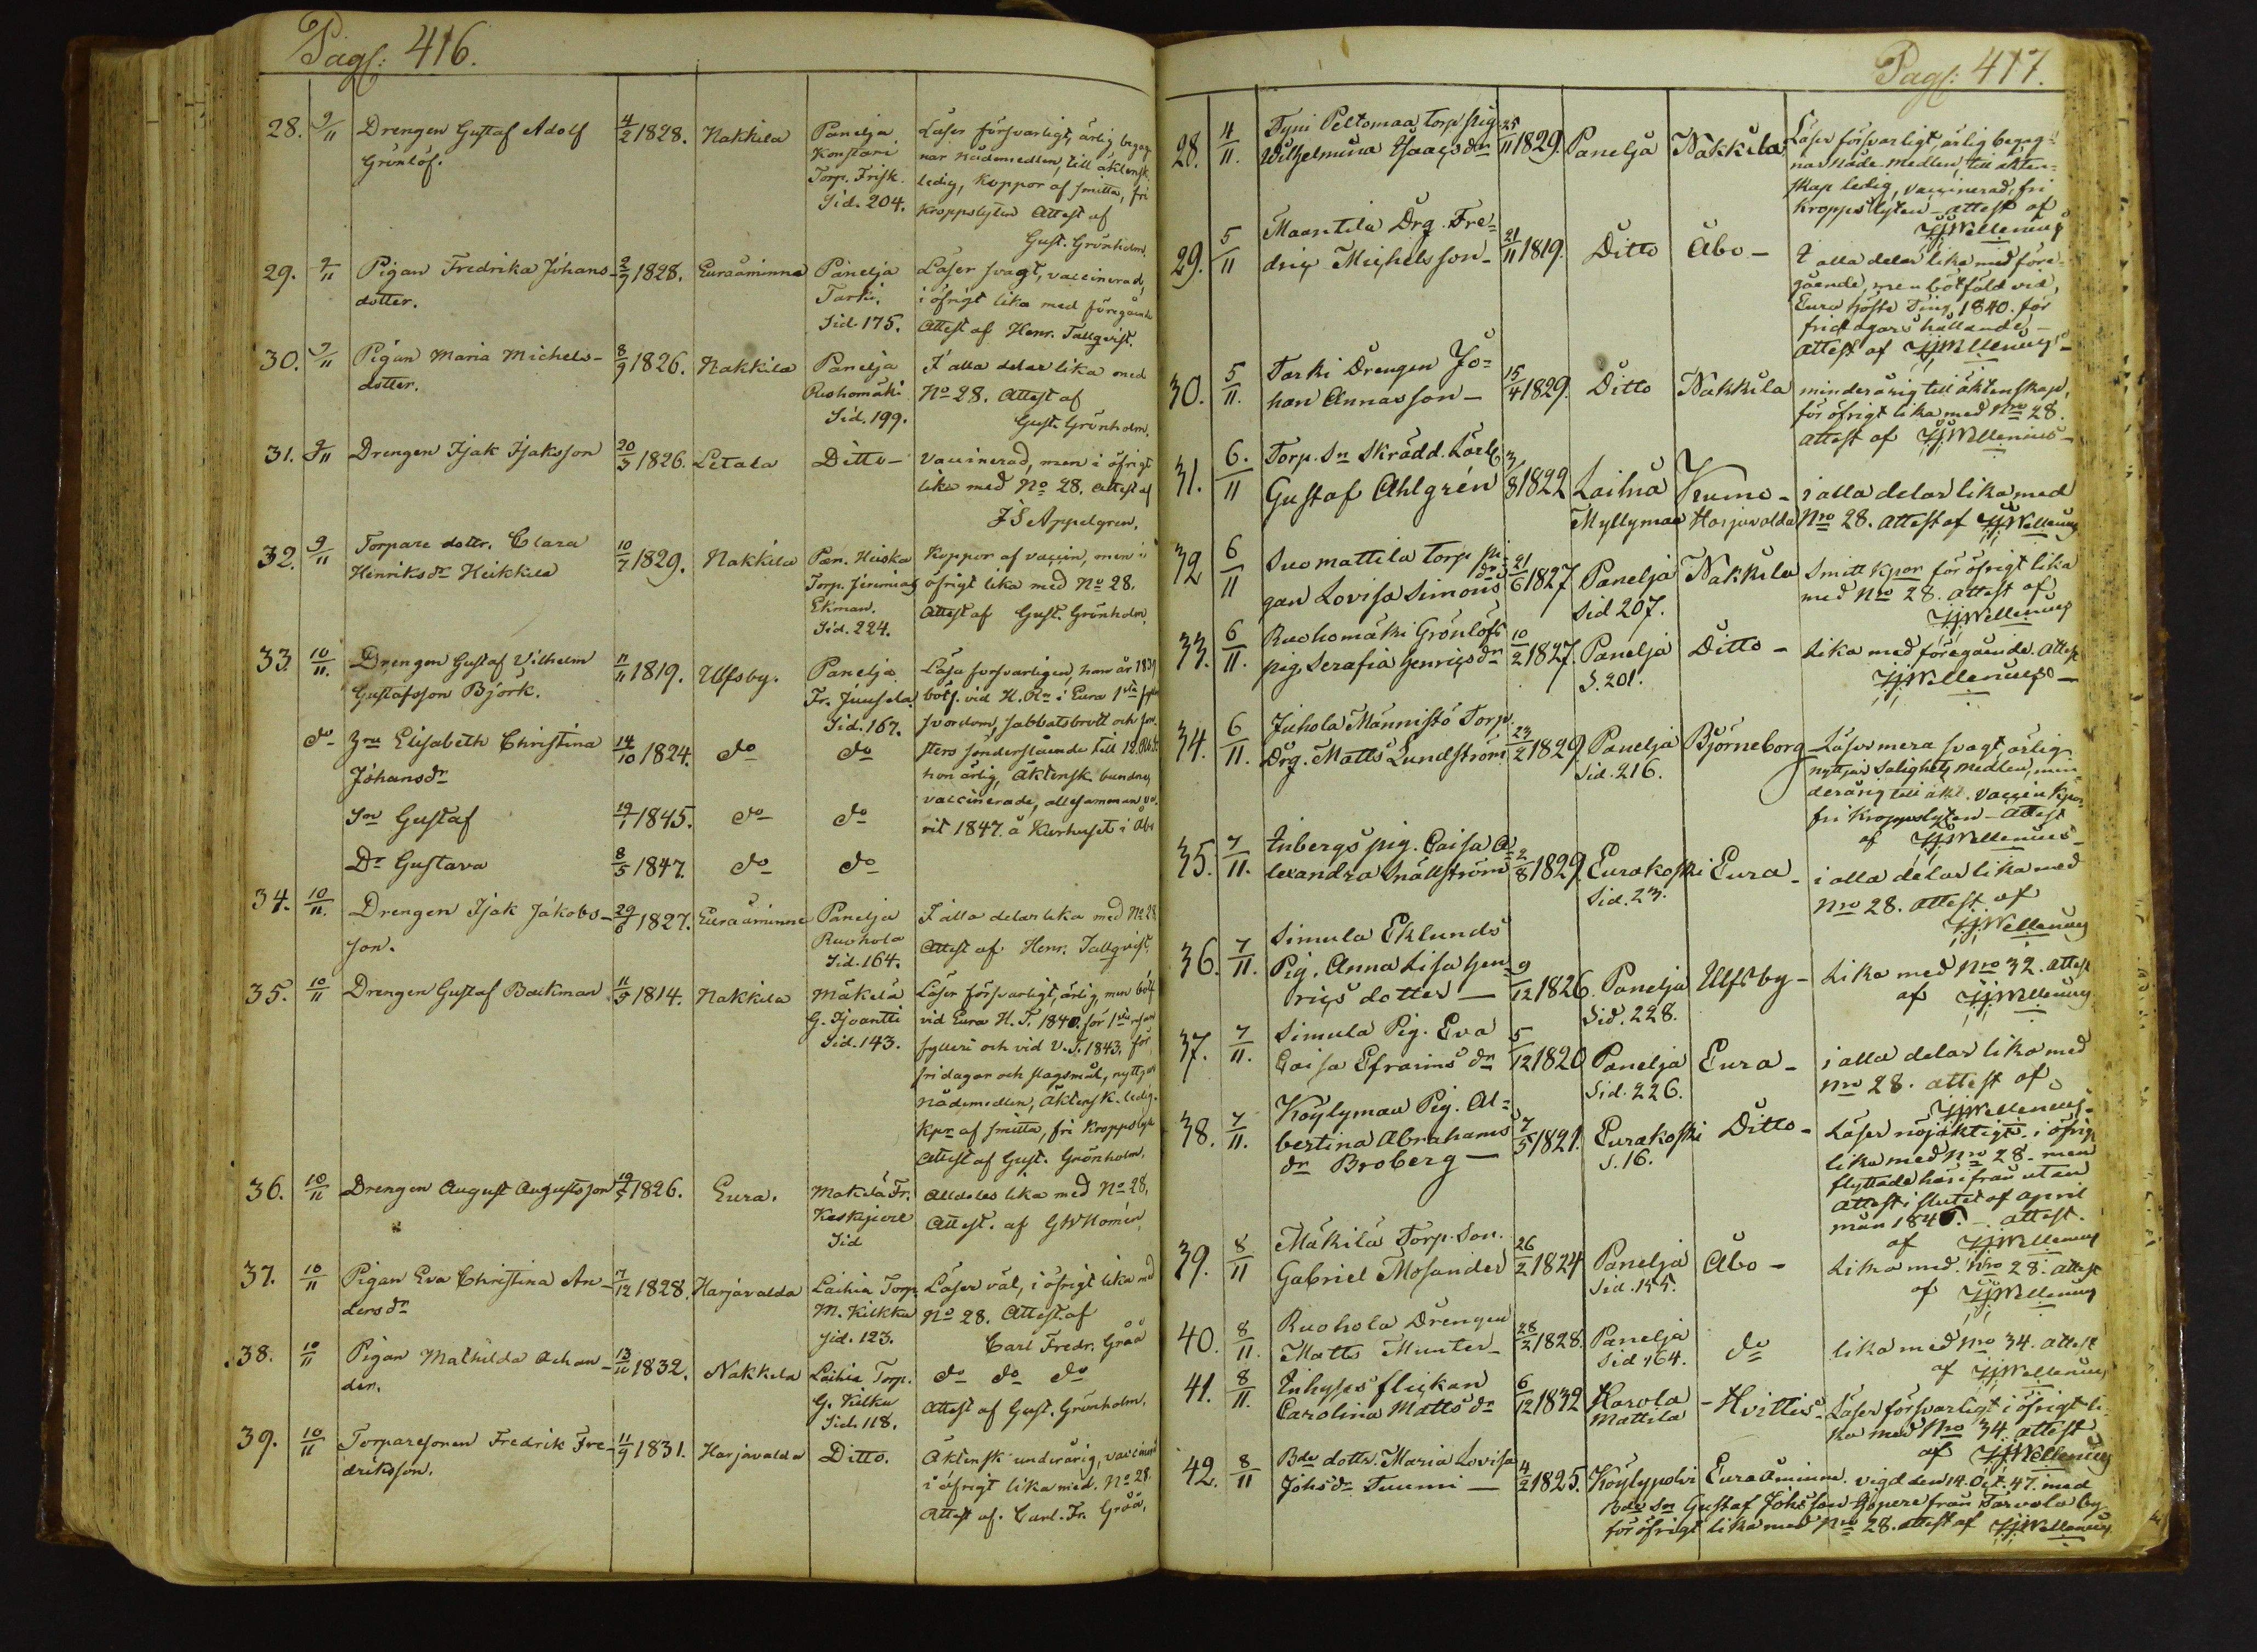 Pag: 416.
28. 9/11 Drengen Gustaf Adolf 4/2 1828. Nakkila Panelja Läser försvarligt, ärlig, begag-
Grönlöf. Konstari nar nådemedlen, till äktensk.
Torp. Frisk. ledig, Koppor af smitta, fri
Sid. 204. Kroppslyten Attest af
Gust. Grönholm.
29. 9/11 Pigan Fredrika Johans- 2/9 1828. Euraåminne Panelja Läser svagt, vaccinerad,
dotter. Tarki, i öfrigt lika med föregående
Sid. 175. Attest af Henr. Tallqvist.
30. 9/11 Pigan Maria Michels- 8/9 1826. Nakkila Panelja I alla delar lika med
dotter. Ruohomäki No 28. Attest af
Sid. 199. Gust. Grönholm.
31. 9/11 Drengen Isak Isaksson 20/3 1826. Letala Ditto- Vaccinerad, men i öfrigt
lika med No 28. Attest af
J S Appelgren.
32. 9/11 Torpare dottr. Clara 10/7 1829. Nakkila Pan. Heiska Koppor af vaccin, men i
Hinriksdr Heikkilä Torp. Jeremias öfrigt lika med No 28.
Ekman. Attest af Gust. Grönholm.
Sid. 224.
33. 10/11. Drengen Gustaf Vilhelm 11/11 1819. Ulfsby. Panelja Läsa forsvarligen, han är 1839
Gustafsson Björk. Fr. Juusela botf. vid H. Rn i Eura 1sta
Sid. 167. svordom, sabbatsbrott och
do- Hru Elisabeth Christina 14/10 1824. do do
Johansdr hon ärlig, Äktensk. bundne,
Sn Gustaf 19/1 1845. do- do vaccinerade, allesamman
rit 1847. å Kurhuset i Åbo
Dr Gustava 8/5 1847. do- do-
34. 10/11. Drengen Isak Jakobs- 29/6 1827. Euraåminne Panelja I alla delar lika med No 28
son. Ruohola Attest af Henr. Tallqvist.
Sid. 164.
35. 10/11 Drengen Gustaf Backman 11/5 1814. Nakkila Mäkelä Läser försvarligt, ärlig men bötf
G. Isoantti vid Eura H. T. 1840. för 1sta resan
Sid. 143. fylleri och vid V. T. 1843. för
fridagar och slagsmål, nyttjar
nådemedlen, Äktensk. ledig.
Kpr af smitta, fri Kroppslyte
Attest af Gust. Grönholm.
36. 10/11 Drengen August Augustsson 19/5 1826. Eura. Mäkelä Fr. Alldeles lika med No 28,
Attest. af GWHomén
Sid
37. 10/11 Pigan Eva Christina An- 7/12 1828. Harjavalda Laihia Torp. Läser väl, i öfrigt lika med
dersdr M. Kilkku No 28. Attest af
Sid. 123. Carl Fredr. Gråå
38. 10/11 Pigan Mathilda Achan- 13/10 1832. Nakkila Laihia Torp. do do do
der. G. Kilku Attest af Gust. Grönholm.
Sid. 118.
39. 10/11 Torparesonen Fredrik Fre- 11/9 1831. Harjavalda Ditto. Äktensk underårig, vaccinerad
driksson. i öfrigt lika med. No 28.
Attest af. Carl. Fr. Gråå,
Pag: 417.
28. 4/11. Tyni Peltomaa Torp pig 25/11 1829. Panelja Nakkila Läser försvarligt, ärlig begag-
Wilhelmina Isaacsdr nar Nåde-medlen, till äkten-
skap ledig, vaccinerad, fri
Kroppslyten - attest af
JJWellenius
29. 5/11 Maantila Drg. Fre- 21/11 1819. Ditto Åbo - I alla delar lika med före-
dric Michelsson- gående, men bötfäld vid,
Eura höste Ting 1840. för
fridagars hållande, -
Attest af JJWellenius-
30. 5/11. Tarki Drengen Jo- 15/4 1829. Ditto Nakkila minderårig till äktenskap,
han Annasson - för öfrigt lika med Nro 28.
attest af JJWellenius-
31. 6./11 Torp. Sn Skrädd. Lärl. 3/8 1822 Laihia i alla delar lika med
Gustaf Ahlgrén Myllymaa Harjavalda Nro 28. Attest af JJWellenius
32 6/11 Suomattila Torp pi- 21/6 1827 Panelja Nakkila Smitt Kpor för öfrigt lika
gan Lovisa Simons dr Sid 207. med Nro 28. attest af
JJWellenius
33. 6/11. Ruohomäki Grönlöfs 10/2 1827. Panelja Ditto - Lika med föregående. Attest
pig. Serafia Henricsdr S. 201. JJWellenius -
34. 6/11. Juhola Männistö Torp. 23/2 1829. Panelja Björneborg Läser mera svagt, ärlig
Drg. Matts Lundström Sid. 216. nyttjar Salighets medlen, min-
derårig till äkt. vaccin Kpor
fri Kroppslyten - Attest
af JJWellenius-
35. 7/11. Inbergs pig. Caisa A- 2/8 1829. Eurakoski Eura - i alla delar lika med
lexandra Snällström Sid. 23. Nro 28. attest af
JJWellenius
36. 7/11. Simula Eklunds
Pig. Anna Lisa Hen- 9/12 1826. Panelja Ulfsby - Lika med Nro 32. attest
rics dotter - Sid. 228. af JJWellenius
37. 7/11. Simula Pig. Eva 5/12 1820 Panelja Eura - i alla delar lika med
Caisa Efraims dr Sid. 226. Nro 28. attest af
JJWellenius-
38. 7/11. Köylymaa Pig. Al- 7/5 1821. Eurakoski Ditto - Läser nöjaktigt. i öfrigt
bertina Abrahams S. 16. lika med Nro 28 - men
dr Broberg - flyttade härifrån utan
attest i slutet af April
mån 1846. - attest.
af JJWellenius
39. 8/11 Mäkilä Torp. Son. 26/2 1824 Panelja Åbo - Lika med. Nro 28. attest
Gabriel Mosander Sid. 155. af JJWellenius
40. 8/11. Ruohola Drengen 28/2 1828. Panelja do lika med No 34. attest
Matts Munter- Sid 164. af JJWellenius
41. 8/11. Inhyses flickan 6/12 1832 Harola - Hvittis- Läser försvarligt i öfrigt li-
Carolina Mattsdr Mattila ka med Nro 34 attest
af JJWellenius
42. 8/11 Bde dottr. Maria Lovisa 4/2 1825. Köylypolvi Euraåminne. vigd den 14. Oct. 47. med
Johsdr Tuumi - Bde Sn Gustaf Johsson från Tarvola by
för öfrigt lika med Nro 28. attest af JJWellenius